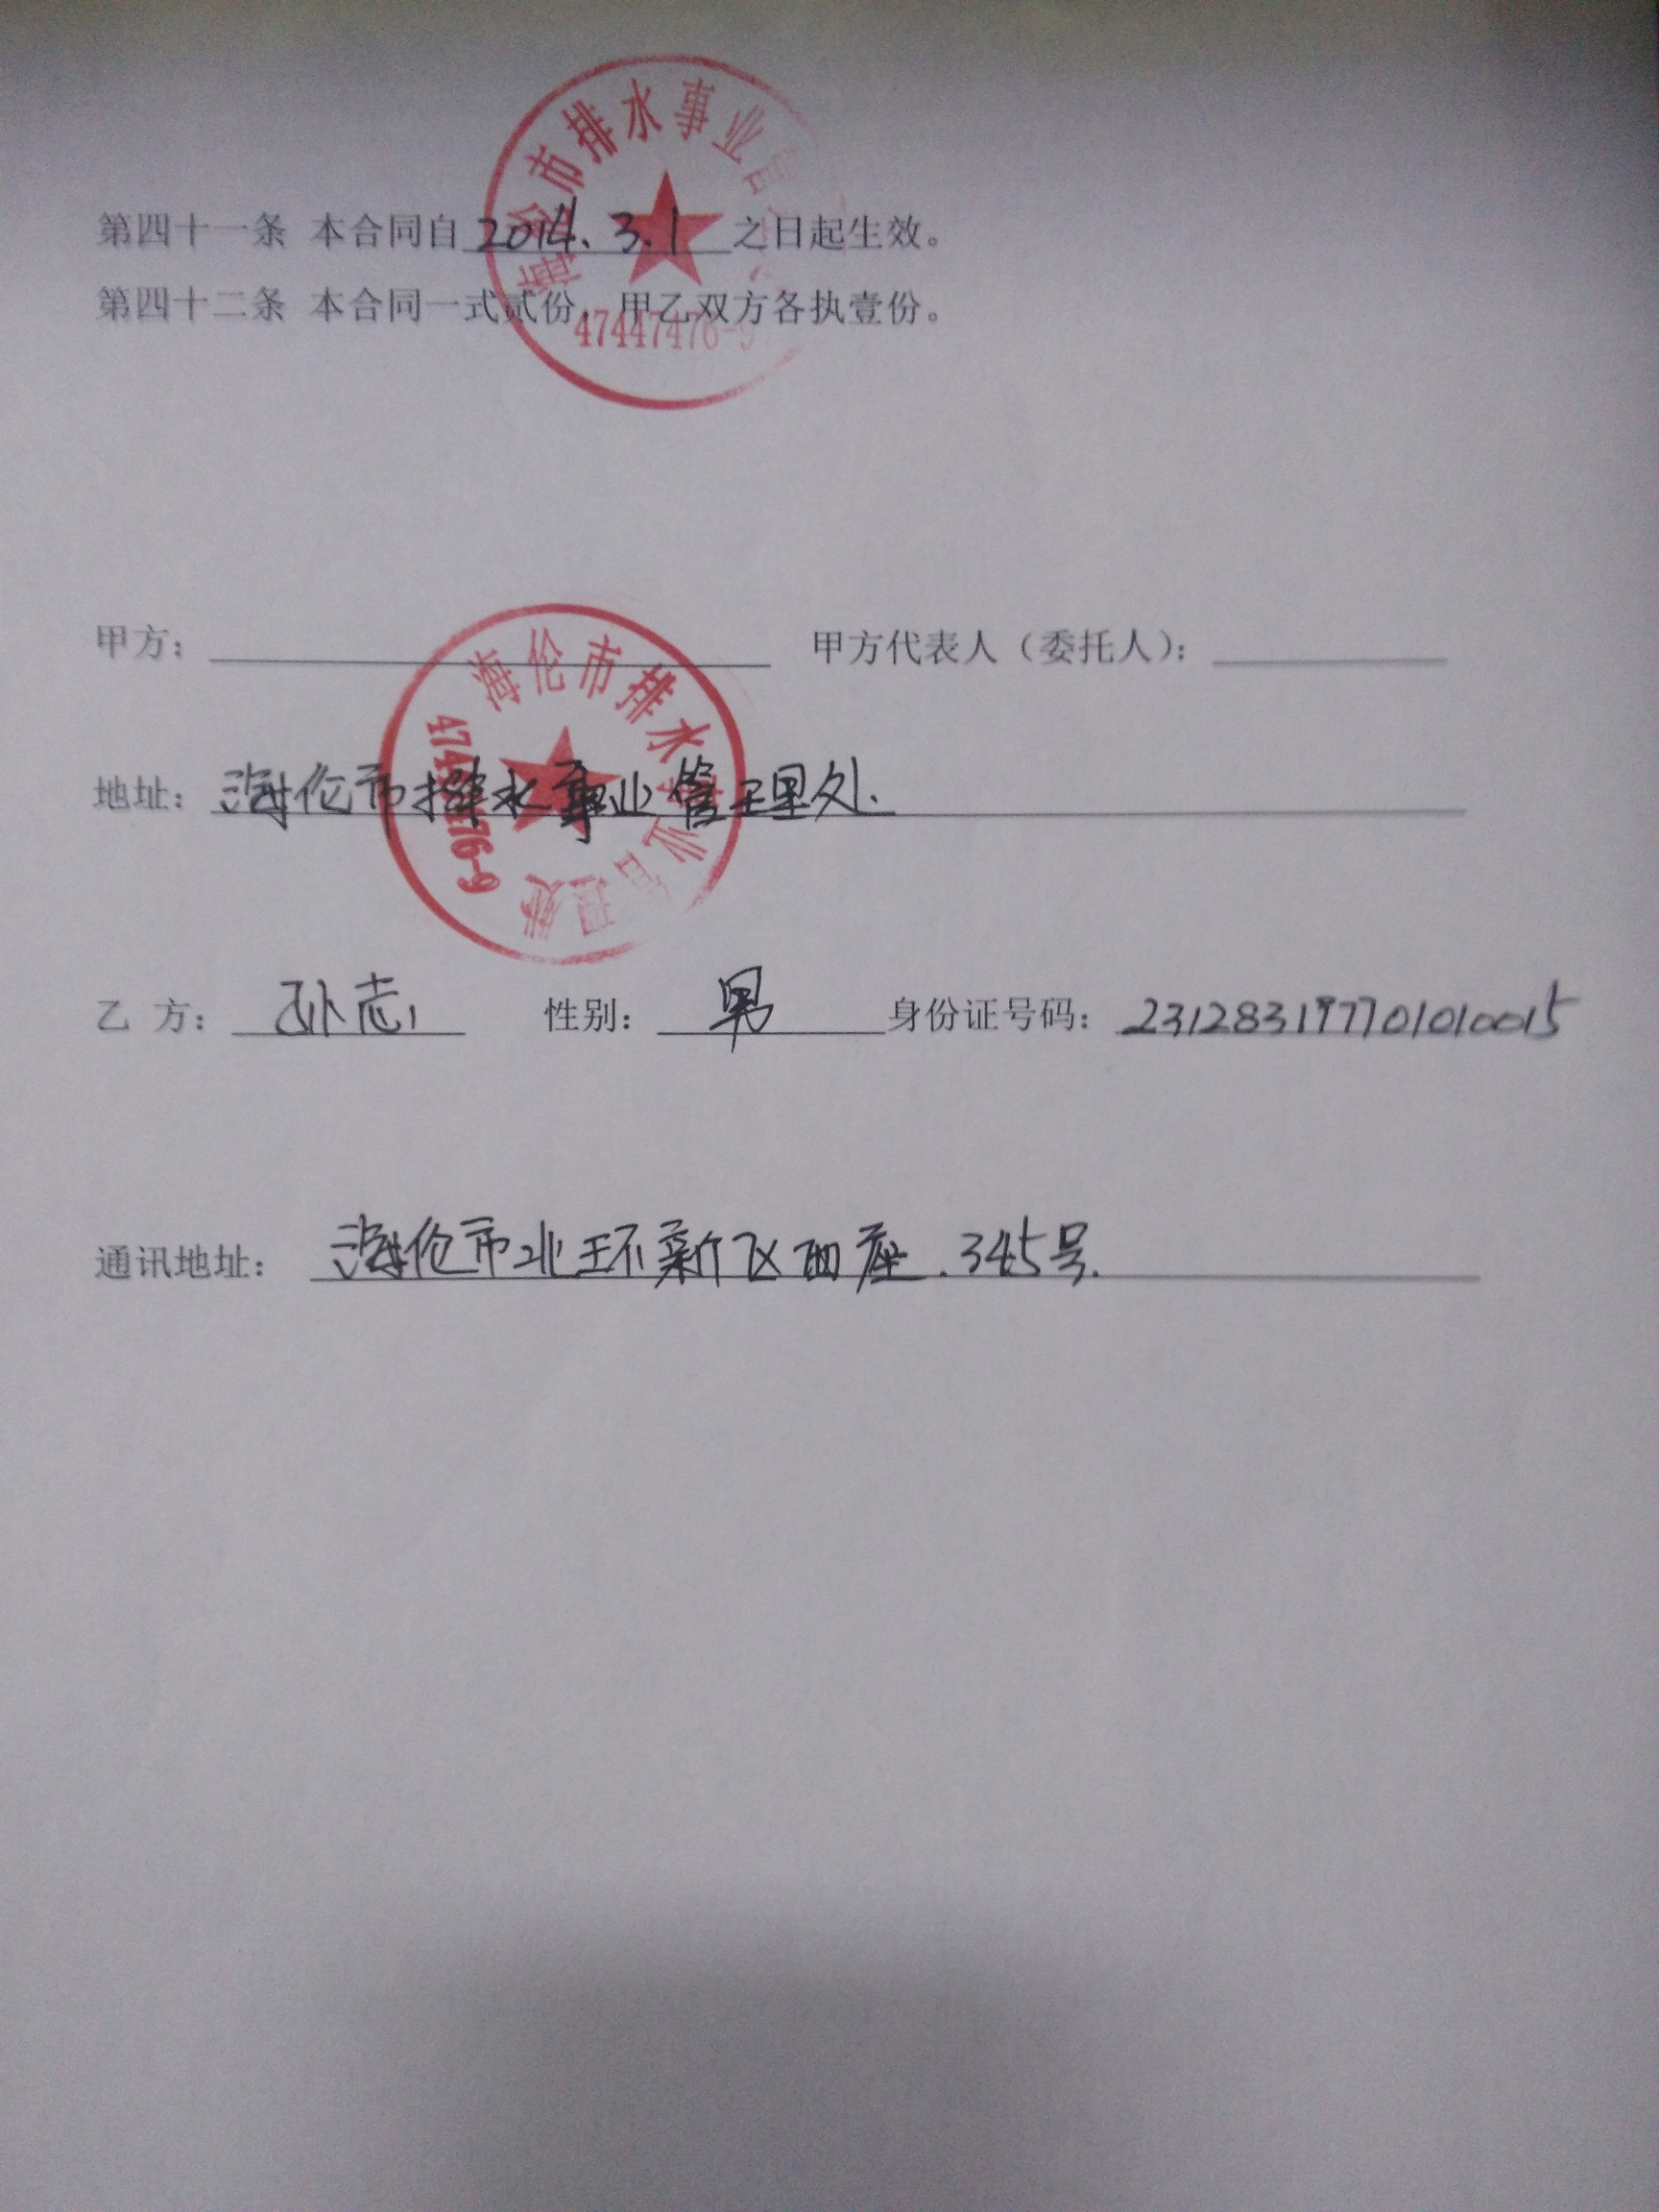 海伦市排水事业管
第四十一条 本合同自 2014.3.1 之日起生效。
第四十二条 本合同一式贰份,甲乙双方各执壹份。
47447476-9
甲方: 甲方代表人(委托人):
海伦市排水事业管理处
47447476-9
地址: 海伦市排水事业管理处.
乙 方: 孙志 性别: 男 身份证号码: 231283197701010015
通讯地址: 海伦市北环新区西座.345号.